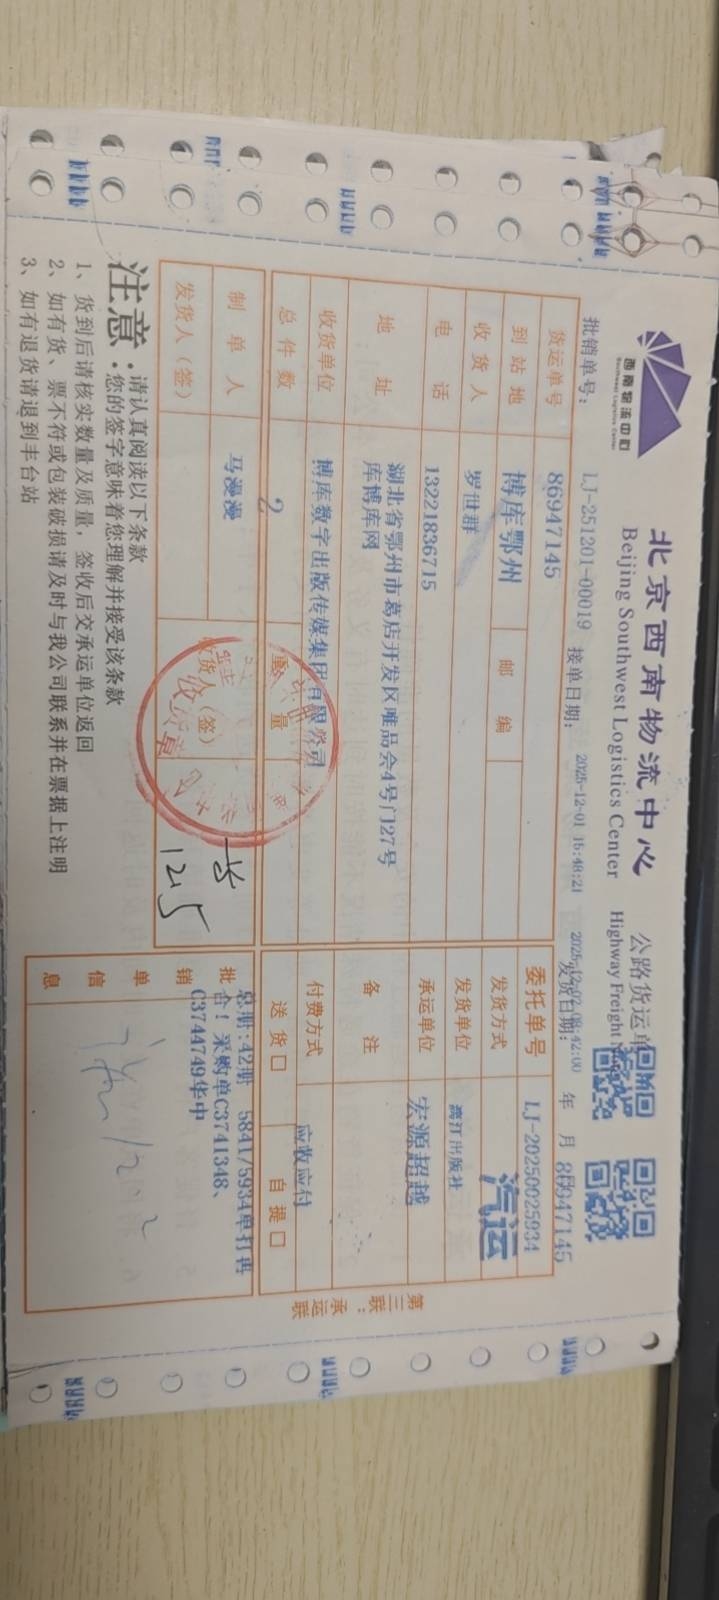 西南物流中心
Southwest Logistics Center
北京西南物流中心 公路货运单
Beijing Southwest Logistics Center Highway Freight
批销单号: LJ-251201-00019 接单日期: 2025-12-01 15:48:21 发货日期: 年 月 日
86947145
货运单号 86947145 委托单号 LJ-20250025934
到站地 博库鄂州 邮编 发货方式 汽运
收货人 罗世群 发货单位 漓江出版社
电话 13221836715 承运单位 宏源超越
地址 湖北省鄂州市葛店开发区唯品会4号门27号
库博库网
备注
收货单位 博库数字出版传媒集团有限公司 付费方式 应收应付
总件数 2 重量 送货口 自提口
制单人 马漫漫
发货人(签) 收货人(签)
收货章
12.5
批销单信息
总册:42册 5841/5934单打再
合!采购单C3741348、
C3744749华中
注意:
请认真阅读以下条款
您的签字意味着您理解并接受该条款
1、货到后请核实数量及质量,签收后交承运单位返回
2、如有货、票不符或包装破损请及时与我公司联系并在票据上注明
3、如有退货请退到丰台站
第三联:承运联